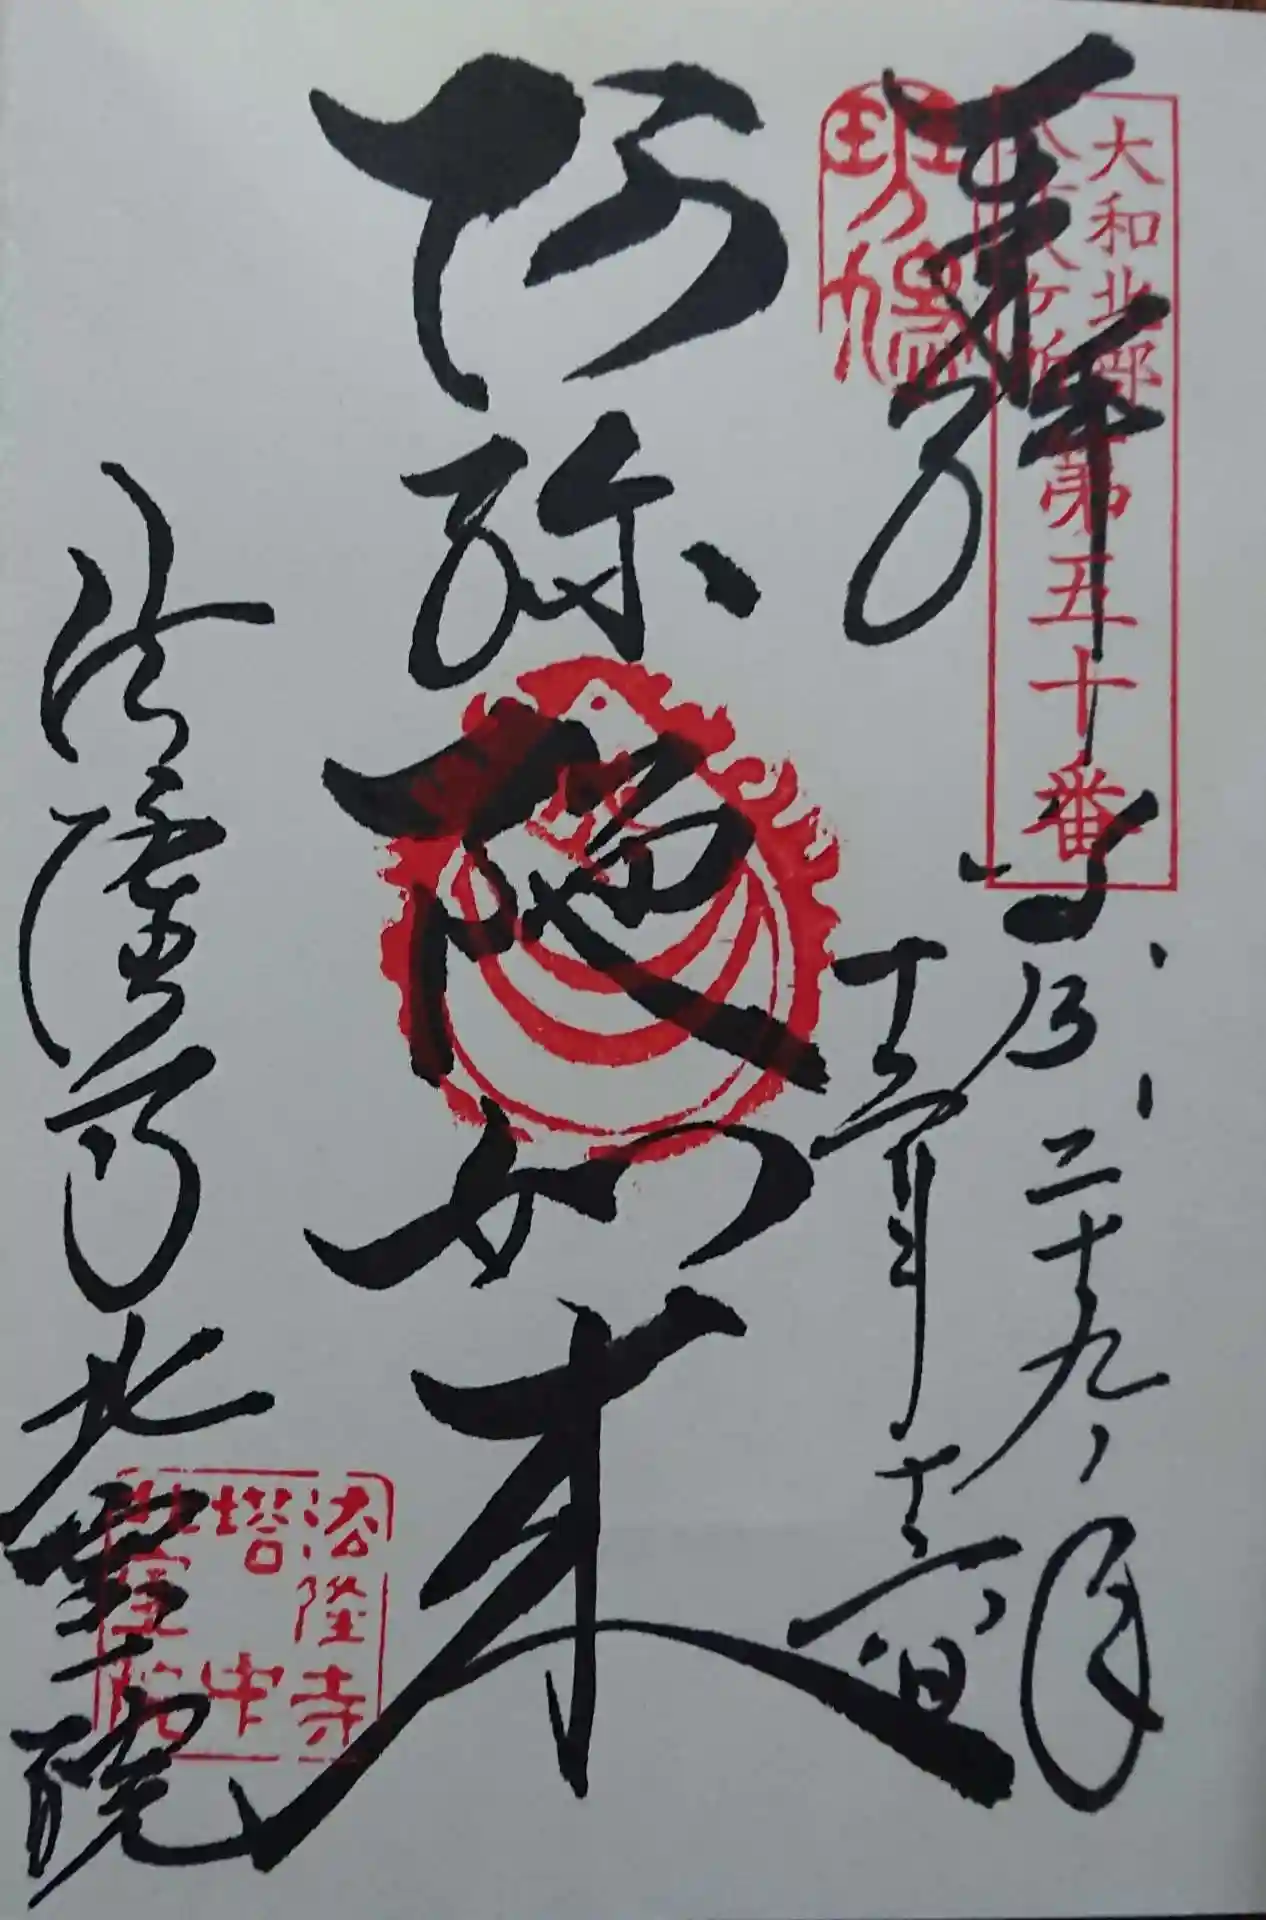 奉拝
大和北部
八十八ヶ所
第五十番
斑鳩
平成二十九年
十二月十二日
阿弥陀如来
法隆寺北室院
法隆寺
塔中
北室院